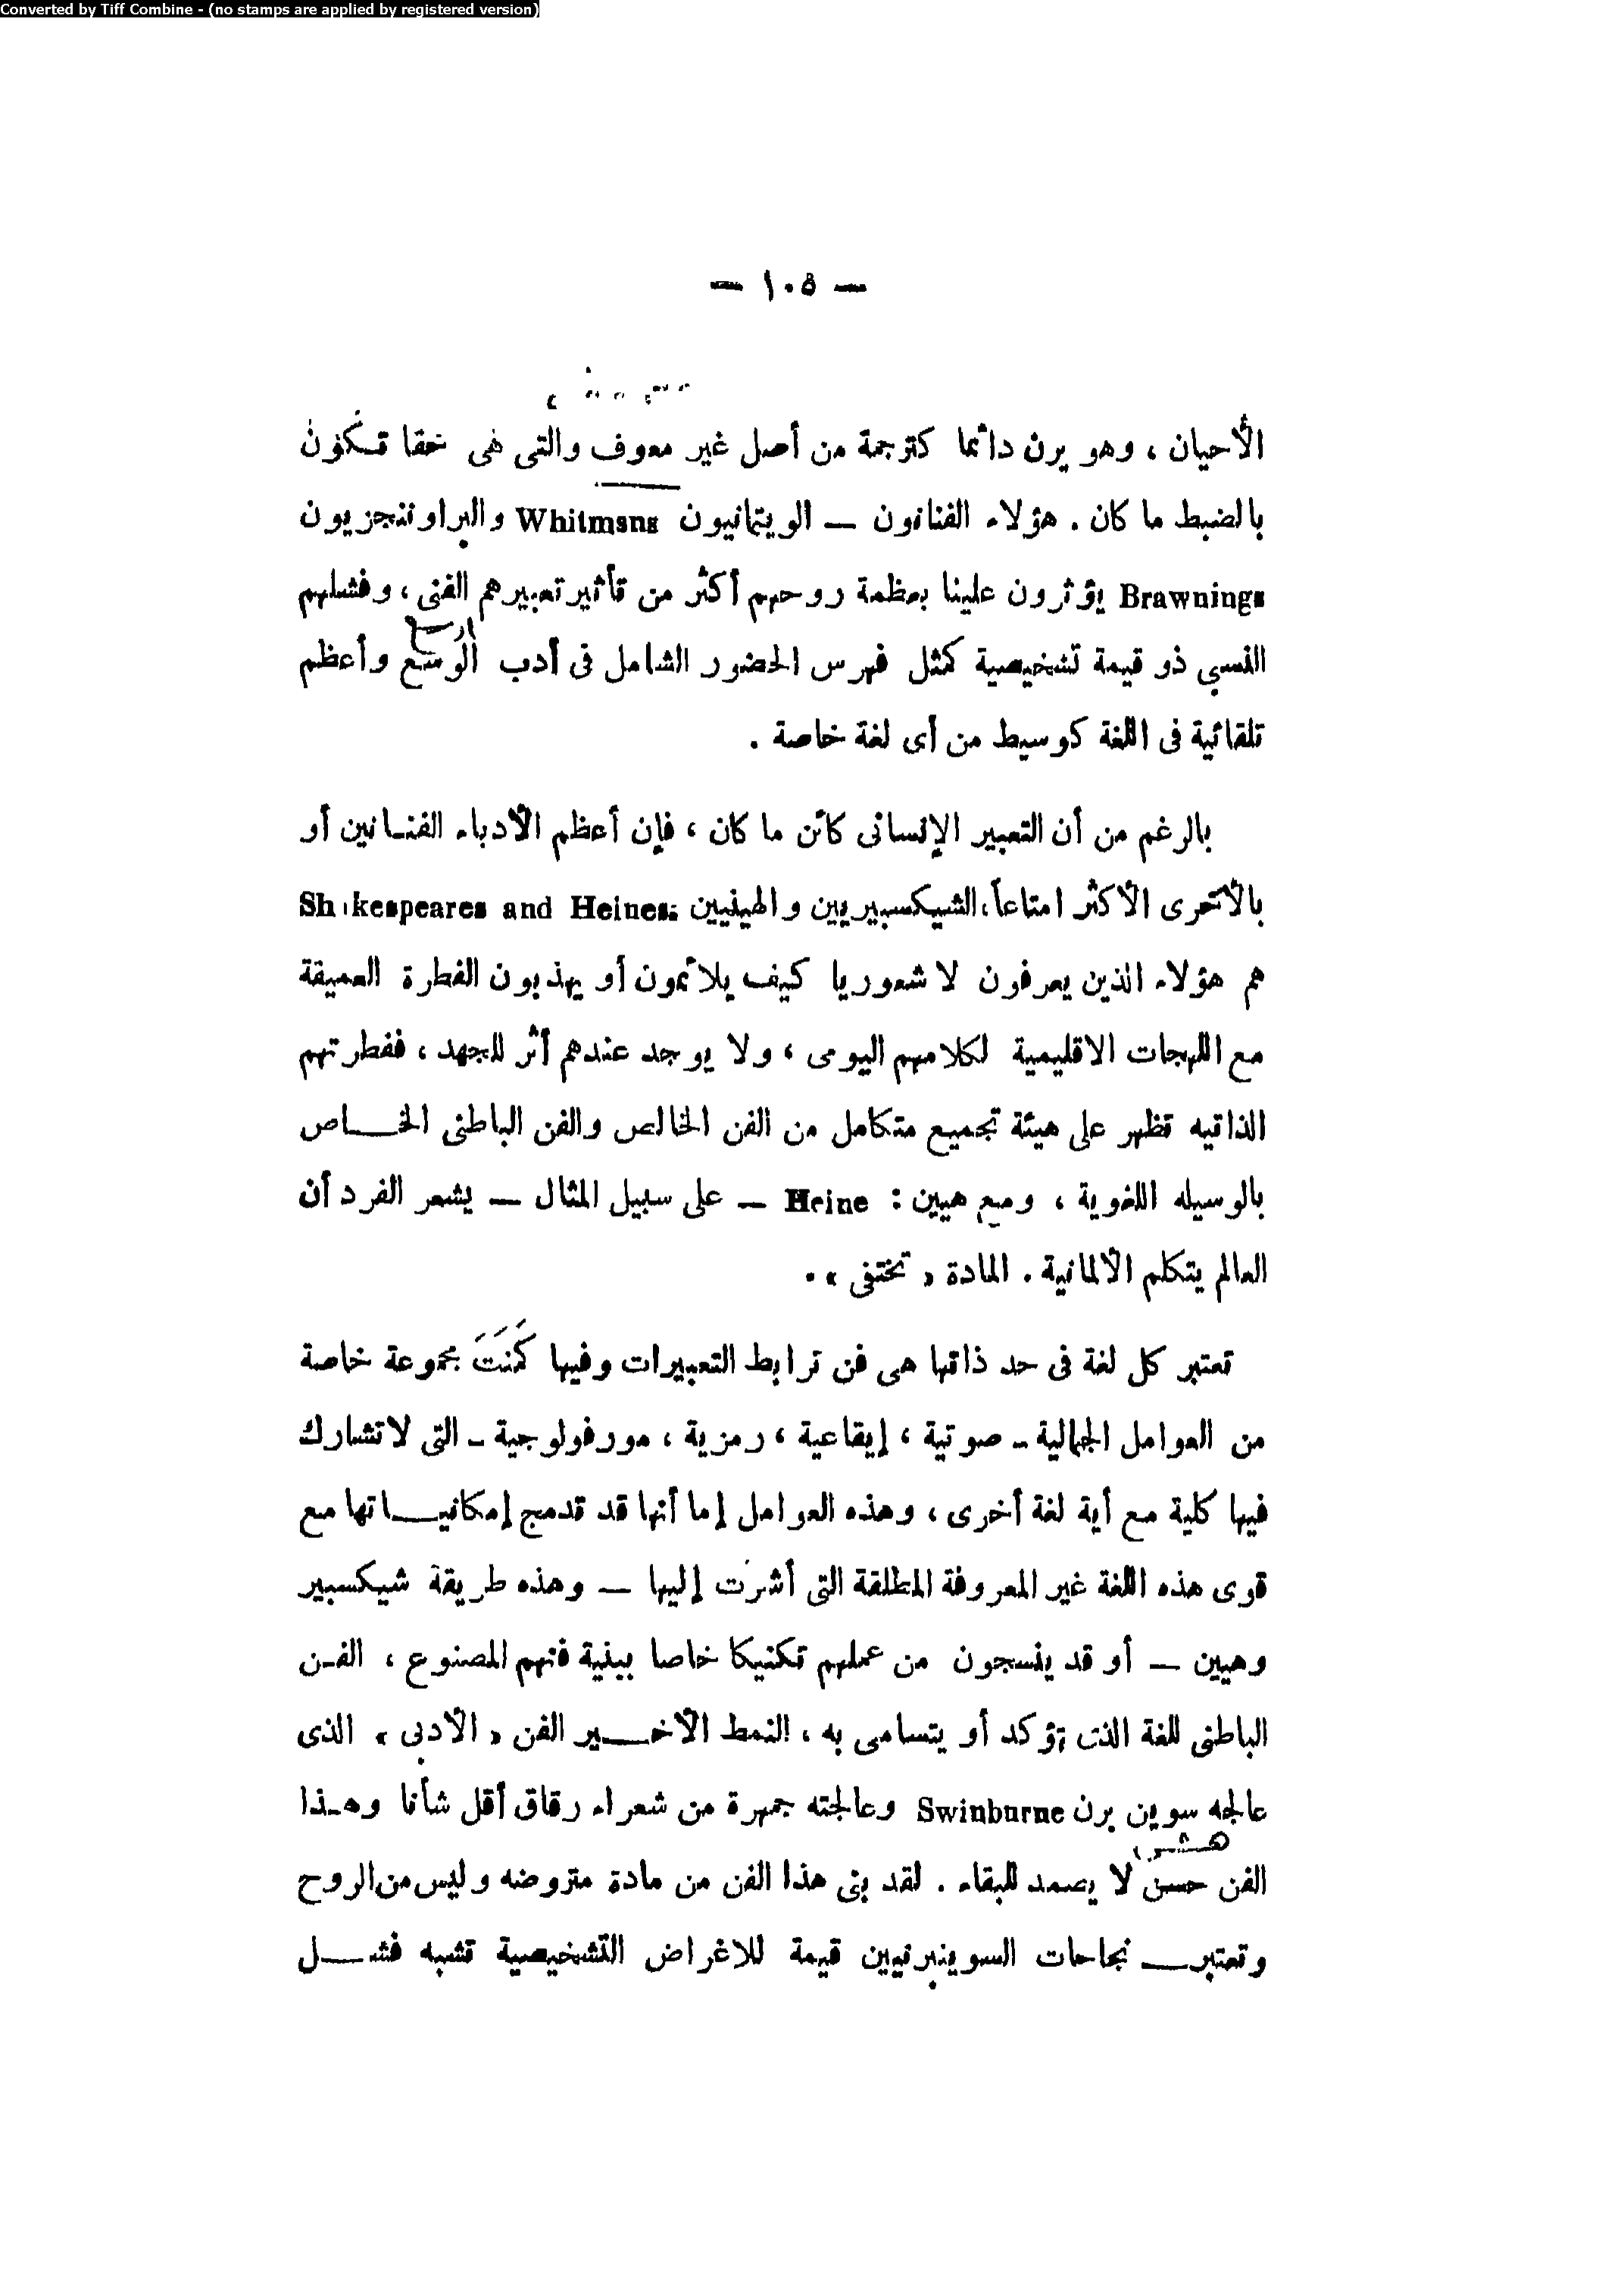 Converted by Tiff Combine - (no stamps are applied by registered version)
— ١٠٥ —
الأحيان ، وهو يرن دائما كترجمة من أصل غير معوف والتى هى حقا تكون
بالضبط ما كان . هؤلاء الفنانون — الويتمانيون Whitmsns والبراوننجزيون
Brawnings يؤثرون علينا بعظمة روحهم أكثر من تأثير تعبيرهم الفنى ، وفشلهم
النسبي ذو قيمة تشخيصية كمثل فهرس الحضور الشامل فى أدب وأعظم
تلقائية فى اللغة كوسيط من أى لغة خاصة .
بالرغم من أن التعبير الإنسانى كائن ما كان ، فإن أعظم الأدباء الفنانين أو
بالأحرى الأكثر امتاعاً ، الشيكسبيريين والهينيين Shakespeares and Heines:
هم هؤلاء الذين يعرفون لا شعوريا كيف يلائمون أو يهذبون الفطرة العميقة
مع اللهجات الاقليمية لكلامهم اليومى ، ولا يوجد عندهم أثر للجهد ، ففطرتهم
الذاتيه تظهر على هيئة تجميع متكامل من الفن الخالص والفن الباطنى الخاص
بالوسيله اللغوية ، ومع هيين : Heine — على سبيل المثال — يشعر الفرد أن
العالم يتكلم الألمانية . المادة « تختفى » .
تعتبر كل لغة فى حد ذاتها هى فن ترابط التعبيرات وفيها كَمَنَتَ مجموعة خاصة
من العوامل الجمالية ـ صوتية ، إيقاعية ، رمزية ، مورفولوجية ـ التى لا تشارك
فيها كلية مع أية لغة أخرى ، وهذه العوامل إما أنها قد تدمج إمكانيـاتها مع
قوى هذه اللغة غير المعروفة المطلقة التى أشرت إليها — وهذه طريقة شيكسبير
وهيين — أو قد ينسجون من عملهم تكنيكا خاصا ببنية فنهم المصنوع ، الفن
الباطنى للغة الذت تؤكد أو يتسامى به ، النمط الأخـير الفن « الأدبى » الذى
عالجه سوين برن Swinburne وعالجته جمهرة من شعراء رقاق أقل شأنا وهذا
الفن حسن لا يصمد للبقاء . لقد بنى هذا الفن من مادة متروضه وليس من الروح
وتعتبر نجاحات السوينبرنيين قيمة للاغراض التشخيصية تشبه فشـل